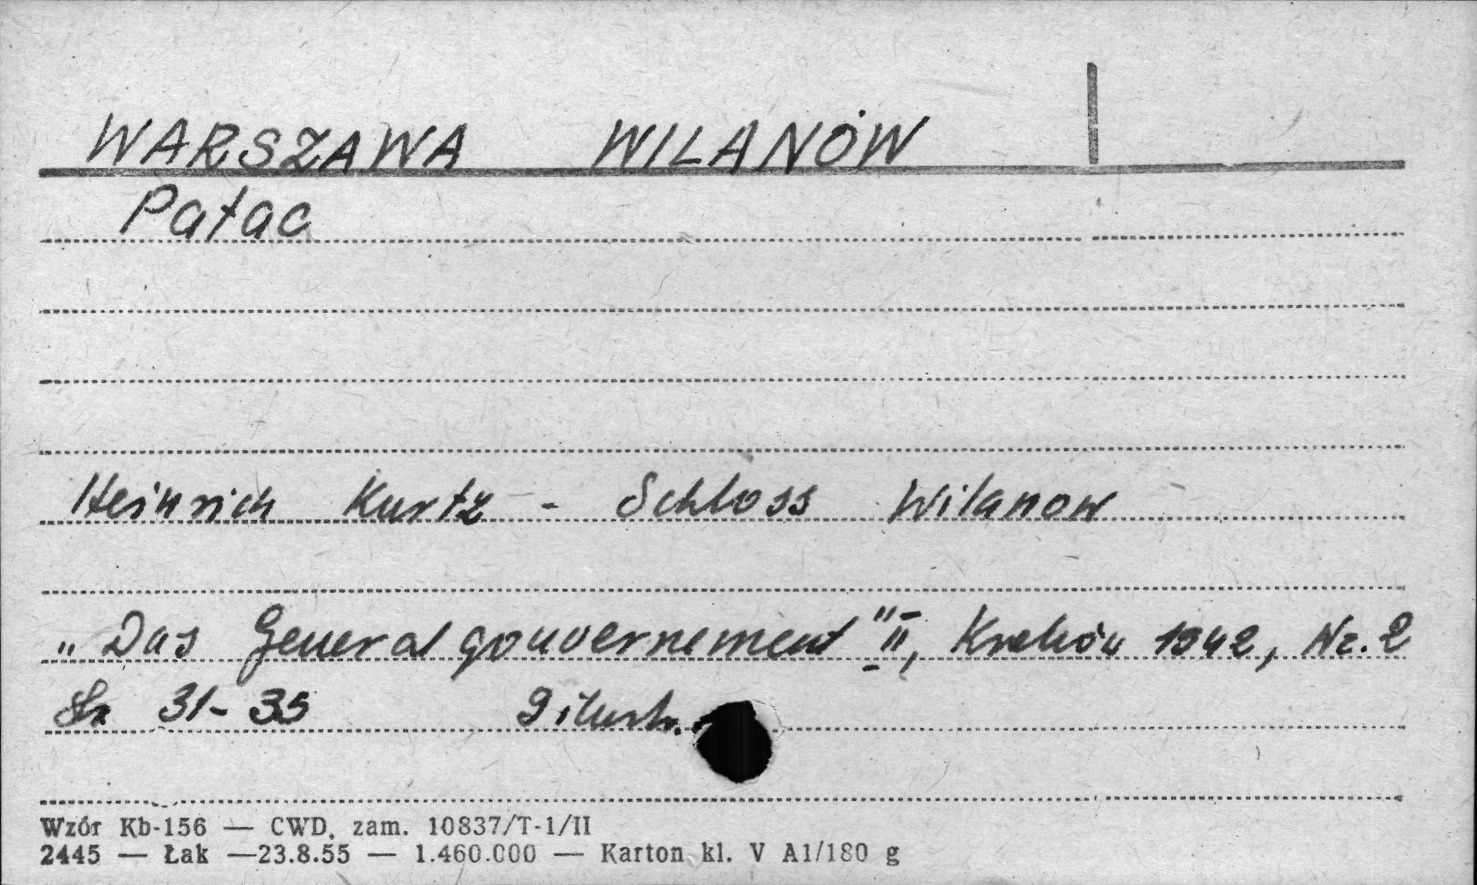 WARSZAWA WILANÓW
Pałac
Heinrich Kurtz - Schloss Wilanow
„Das Generalgouvernement" II, Kraków 1942, Nr. 2
Str 31-35 9 ilustr.
Wzór Kb-156 — CWD, zam. 10837/T-1/II
2445 — Łak —23.8.55 — 1.460.000 — Karton kl. V A1/180 g